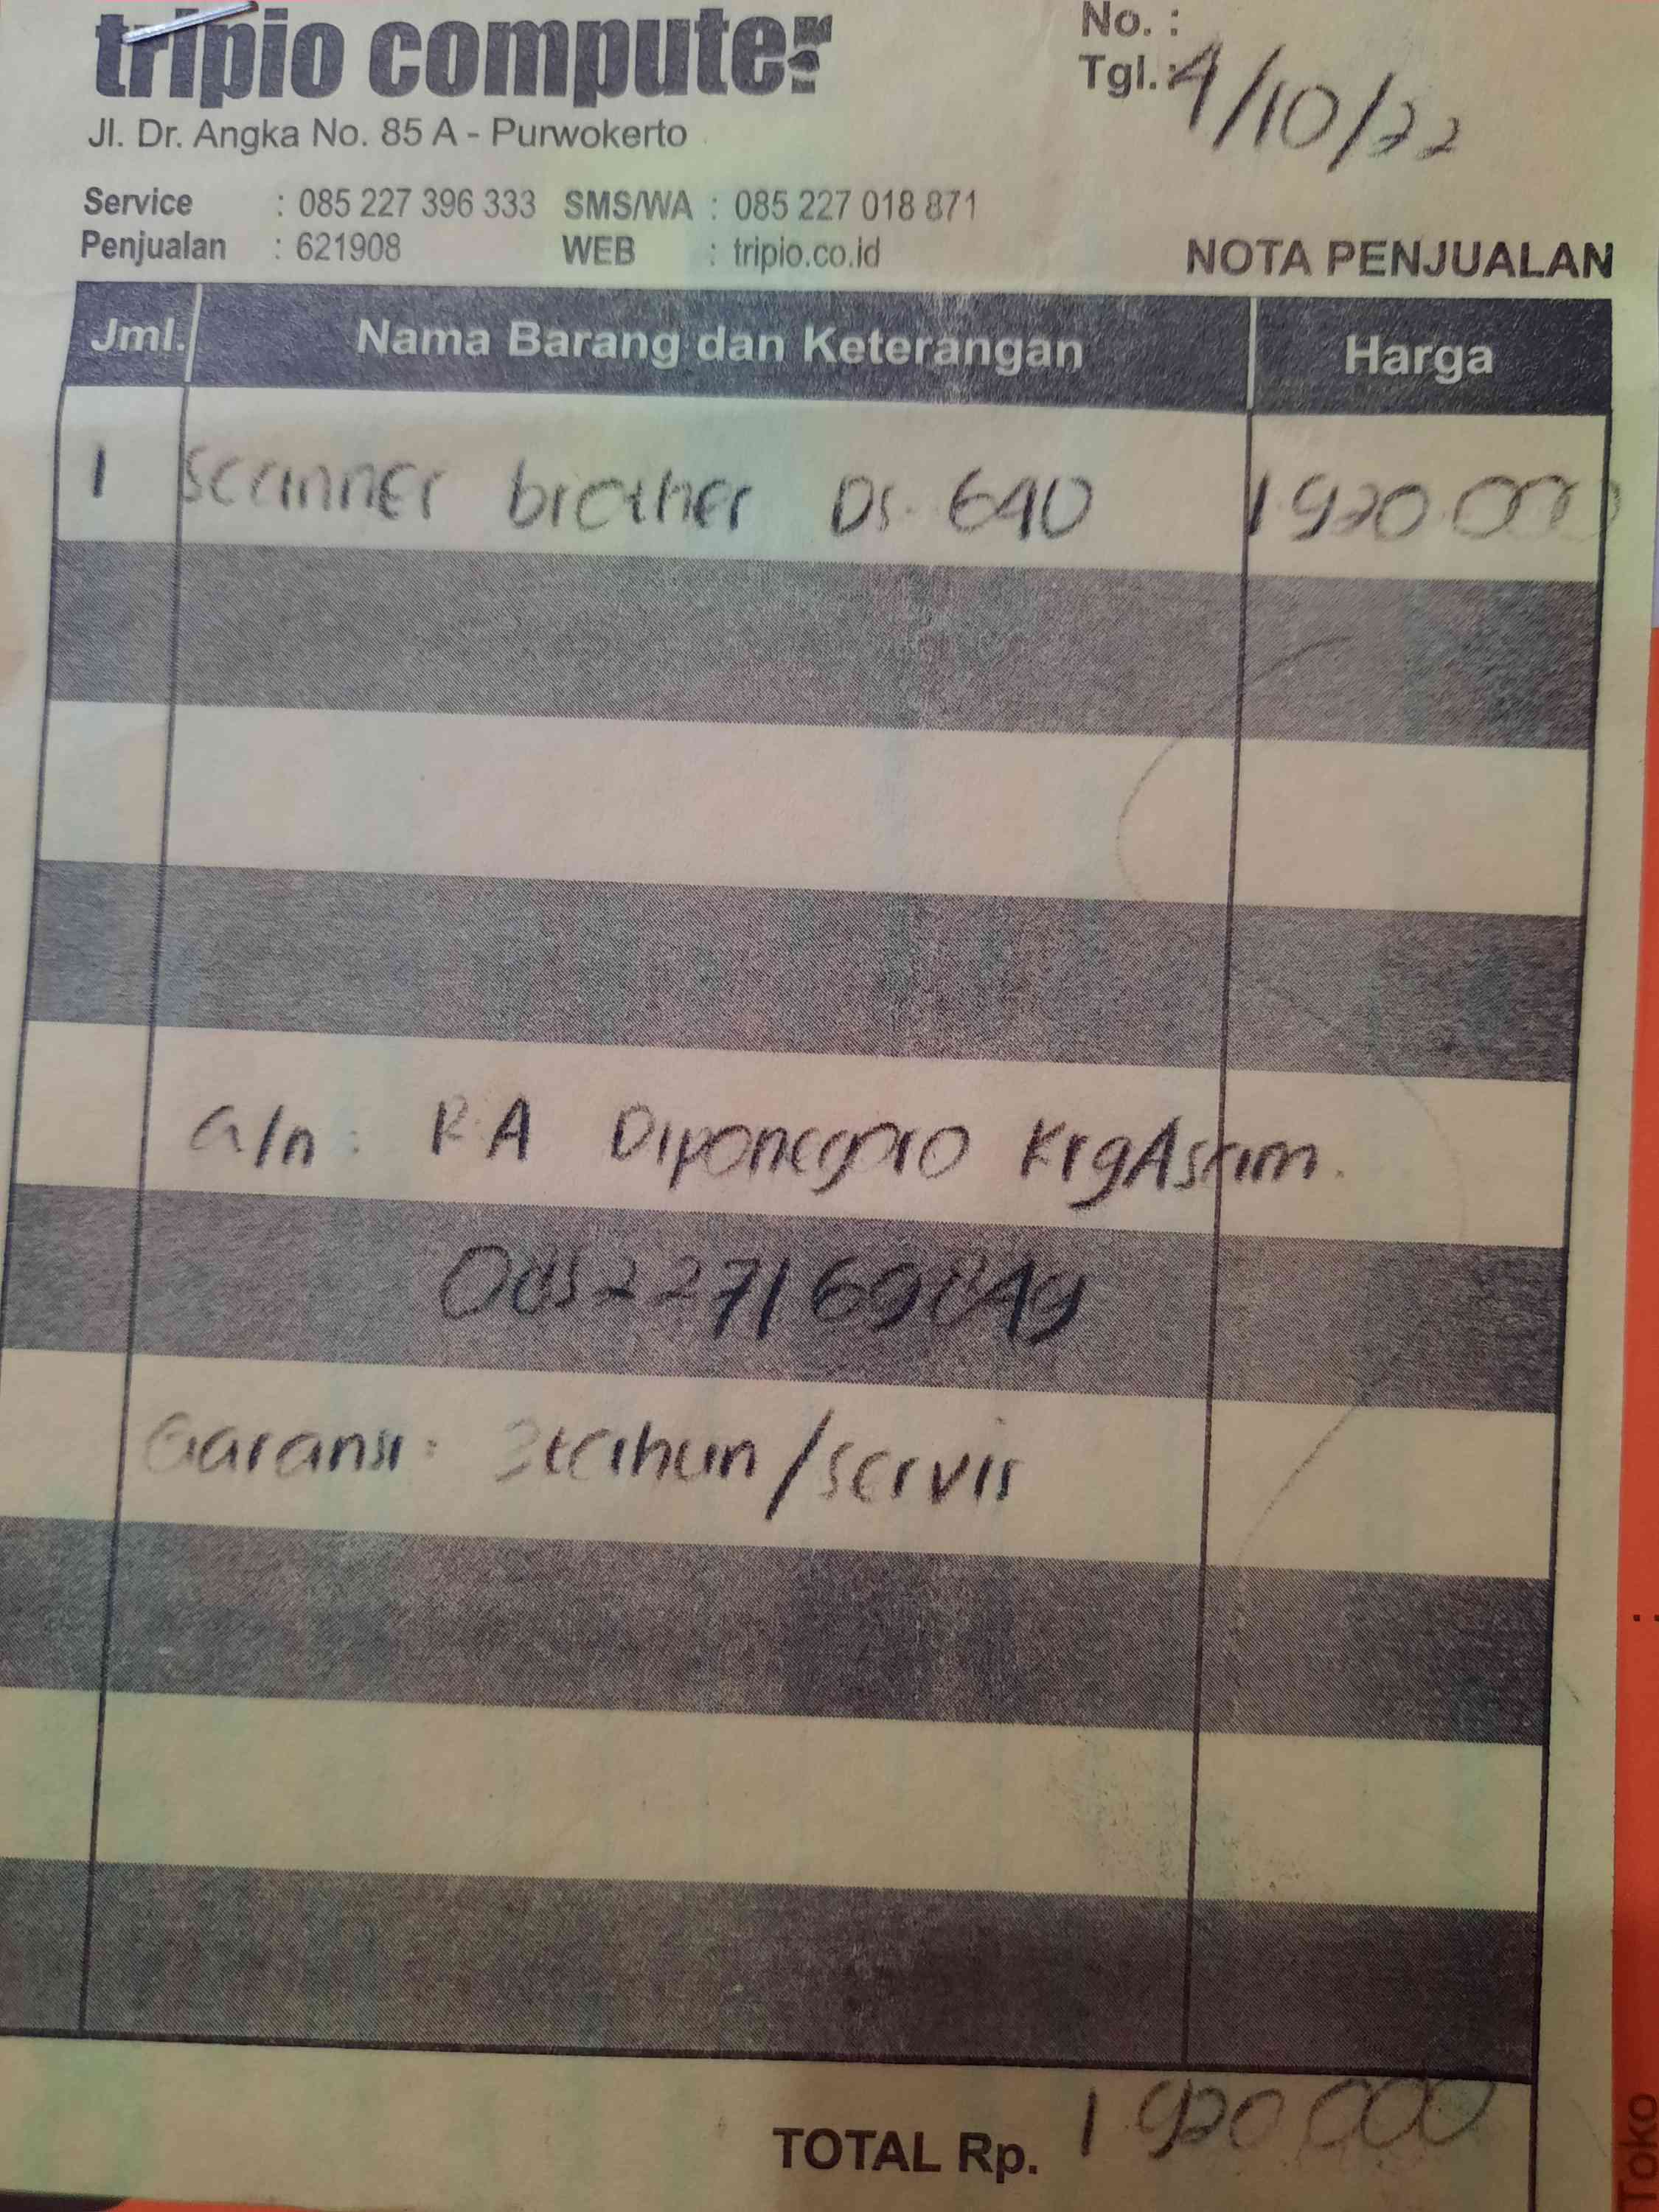 tripio computer
No. :
Tgl. : 4/10/22
Jl. Dr. Angka No. 85 A - Purwokerto
Service : 085 227 396 333 SMS/WA : 085 227 018 871
Penjualan : 621908 WEB : tripio.co.id
NOTA PENJUALAN
Jml. Nama Barang dan Keterangan Harga
1 Scanner brother Ds. 640 1.920.000
a/n : R.A Diponegoro KrgAsem.
085227169849
Garansi : 3 tahun/servis
TOTAL Rp. 1.920.000
Toko